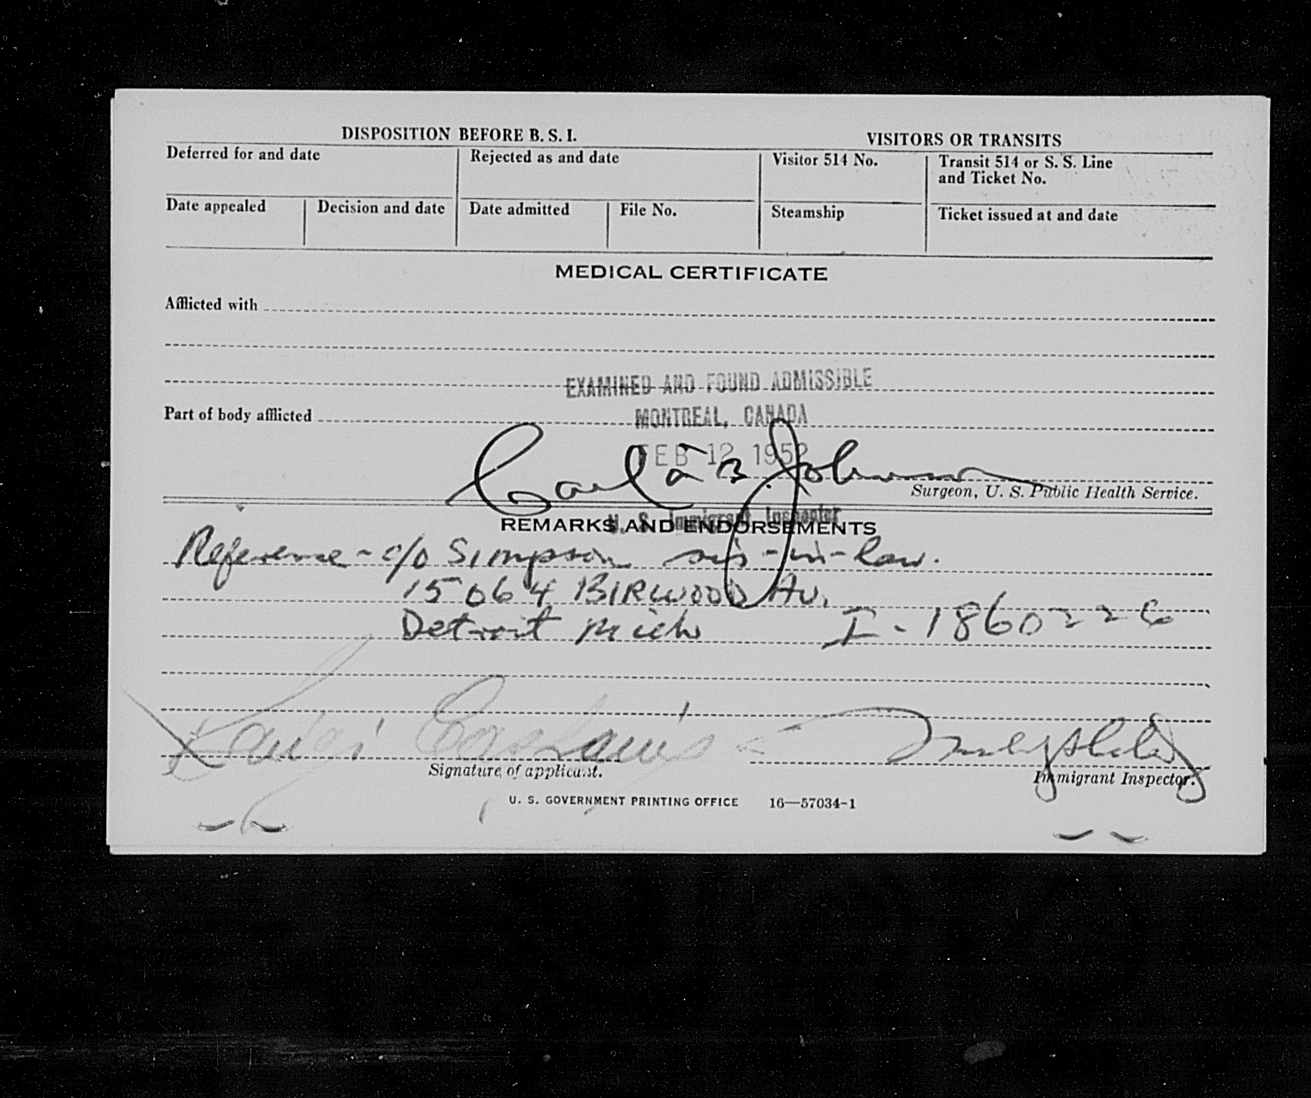 DISPOSITION BEFORE B. S. I.
VISITORS OR TRANSITS
Deferred for and date
Rejected as and date
Visitor 514 No.
Transit 514 or S. S. Line
and Ticket No.
Date appealed
Decision and date
Date admitted
File No.
Steamship
Ticket issued at and date
MEDICAL CERTIFICATE
Afflicted with
EXAMINED AND FOUND ADMISSIBLE
Part of body afflicted
MONTREAL, CANADA
FEB 12 1952
Johnson
Surgeon, U. S. Public Health Service.
U. S. Immigrant Inspector
REMARKS AND ENDORSEMENTS
Reference - c/o Simpson sis-in-law.
15064 BIRWOOD Av.
Detroit Mich I-1860226
Luigi
Signature of applicant.
Immigrant Inspector.
U. S. GOVERNMENT PRINTING OFFICE 16—57034-1